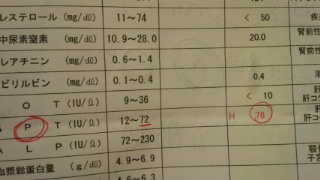 レステロール (mg/dℓ) 11～74 < 50
中尿素窒素 (mg/dℓ) 10.9～28.0 20.0 腎前性
レアチニン (mg/dℓ) 0.6～1.4
ビリルビン (mg/dℓ) 0.1～0.4 0.4
O T (IU/ℓ) 9～36 < 10
P T (IU/ℓ) 12～72 H 78
A L P (IU/ℓ) 72～230
血漿総蛋白量 (g/dℓ) 4.9～6.9
4.6～6.3